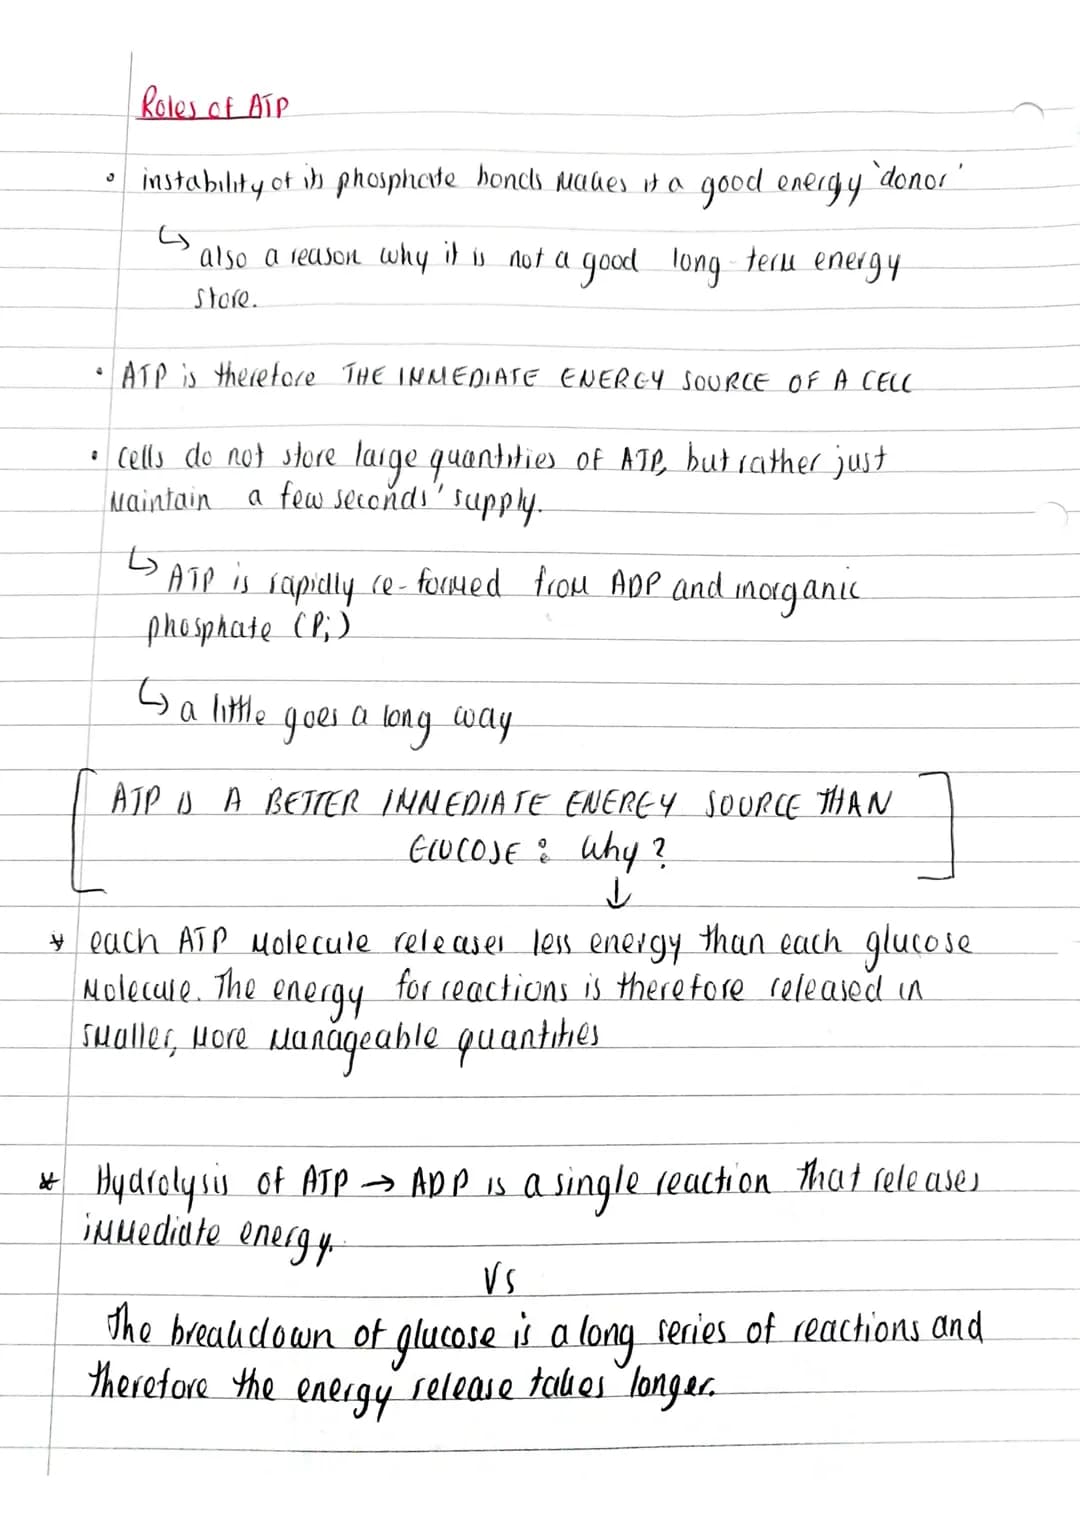 Roles of ATP
• instability of its phosphate bonds makes it a good energy 'donor'
↳ also a reason why it is not a good long-term energy
store.
• ATP is therefore THE IMMEDIATE ENERGY SOURCE OF A CELL
• cells do not store large quantities of ATP, but rather just
maintain a few seconds' supply.
↳ ATP is rapidly re-formed from ADP and inorganic
phosphate (Pi)
↳ a little goes a long way
[ATP IS A BETTER IMMEDIATE ENERGY SOURCE THAN
GLUCOSE : Why ?]
↓
* each ATP molecule releases less energy than each glucose
molecule. The energy for reactions is therefore released in
smaller, more manageable quantities
* Hydrolysis of ATP → ADP is a single reaction that releases
immediate energy.
VS
The breakdown of glucose is a long series of reactions and
therefore the energy release takes longer.